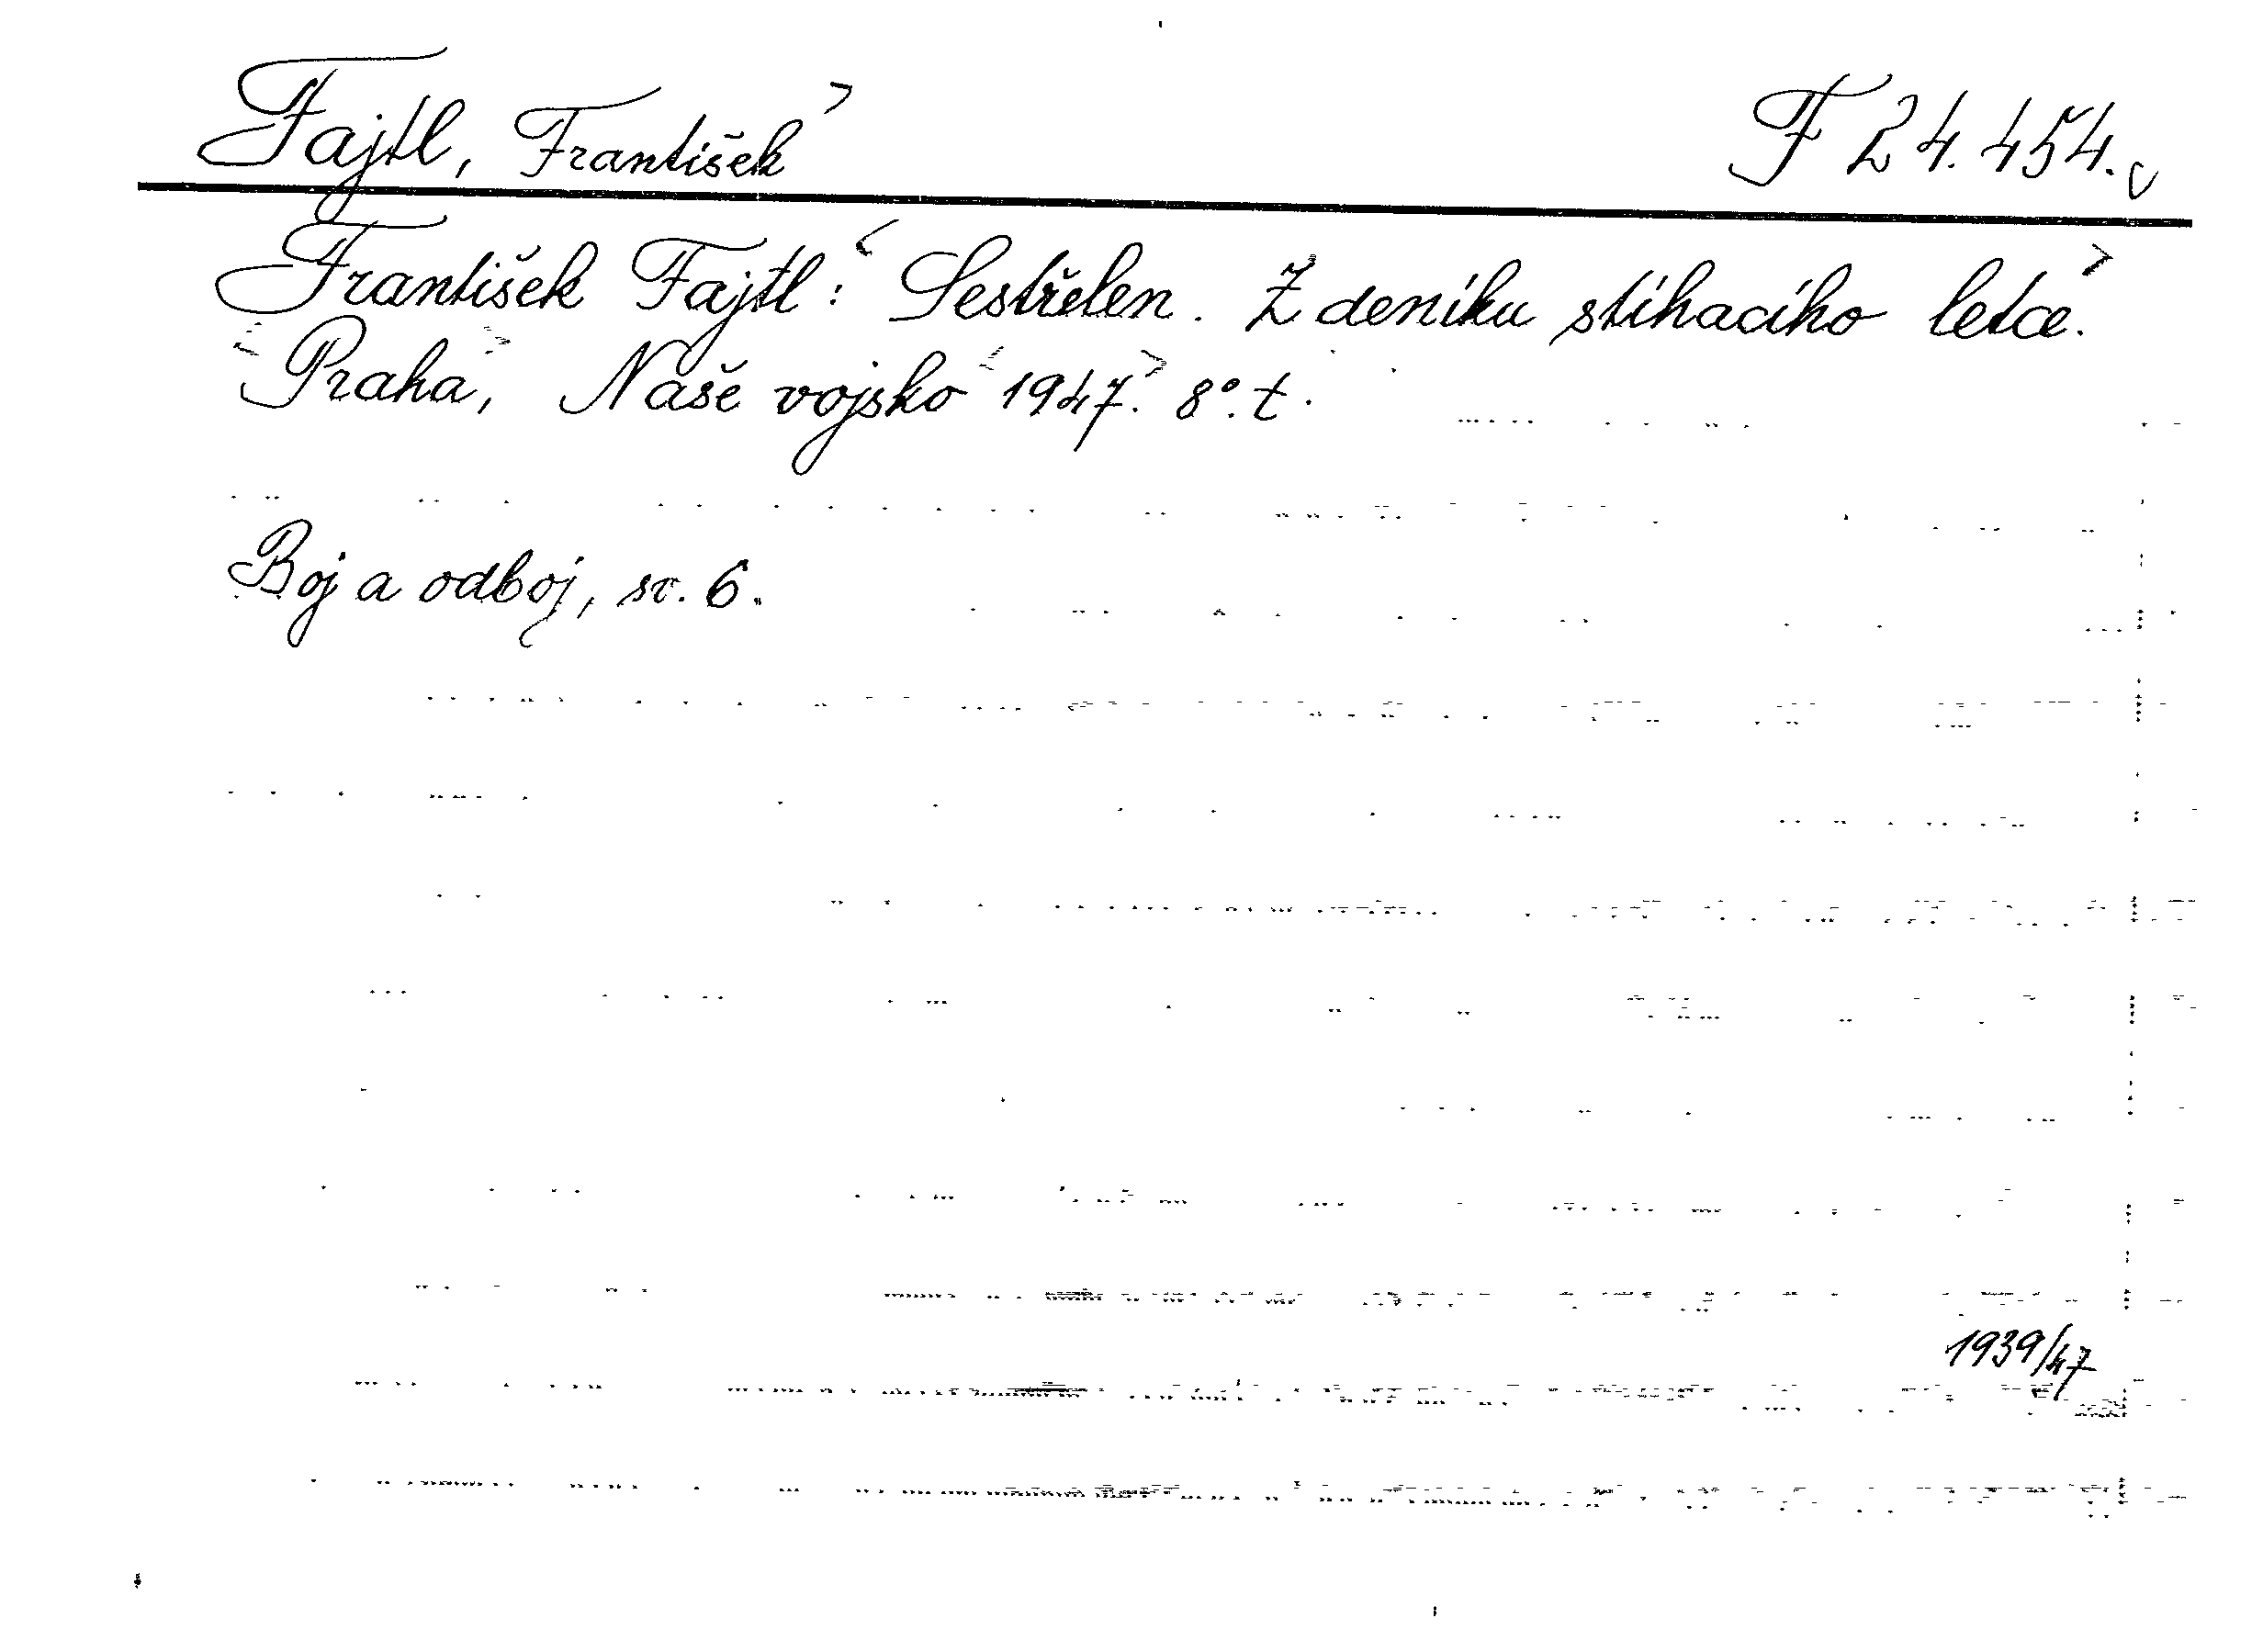 Fajtl, František F 24.454.
František Fajtl: Sestřelen. Z deníku stíhacího letce.
Praha, Naše vojsko 1947. 8°. t.
Boj a odboj, sv. 6.
1939/47